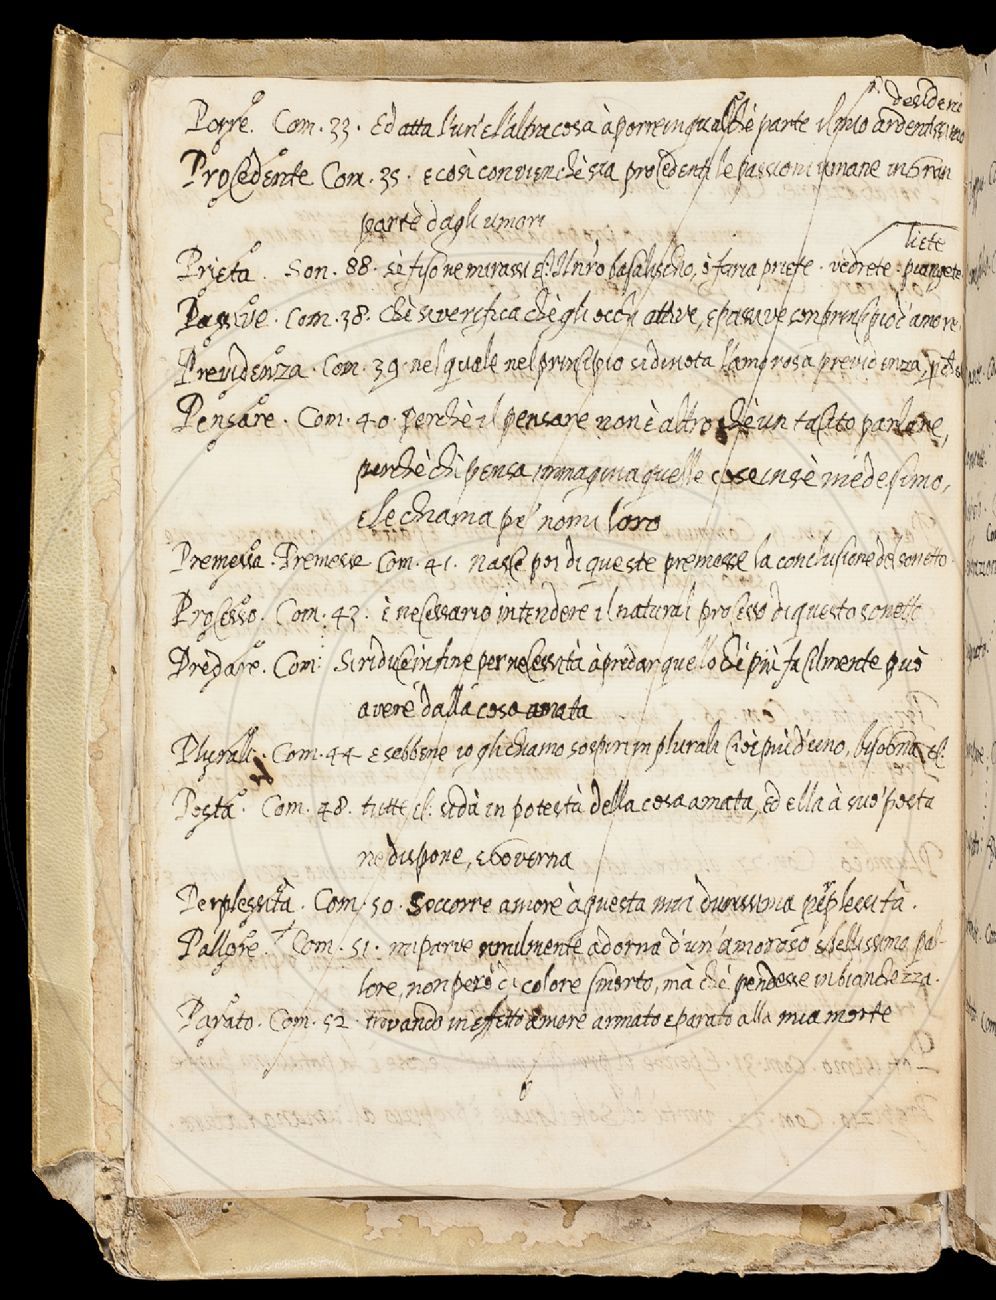 desiderio
Porre. Com. 33. Ed atta l'un' e l'altra cosa à porre in qualchè parte il mio ardentissimo
Procedente Com. 35. e così convien chè sia procedenti le passioni umane in Gran
parte dagli umori
liete
Prieta. Son. 88. sè fiso ne mirassi &c. Un ro basalischo, o faria priete. vedrete. piangete
Passive. Com. 38. chè si verifica chè gli occhi attive, e passive son principio d'amore
Previdenza. Com. 39. nel quale nel principio si dinota l'amorosa previdenza,
Pensare. Com. 40. Perchè il pensare non è altro chè un tacito parlare,
perchè chi pensa immagina quelle cose in sè medesimo,
e le chiama pe' nomi loro
Premessa. Premesse Com. 41. nasce poi di queste premesse la conclusione del sonetto
Processo. Com. 43. è necessario intendere il naturali processo di questo sonetto
Predare. Com: Si riduce in fine per necessità à predar quello chè più facilmente può
avere dalla cosa amata
Plurali. Com. 44 e sebbene io gli chiamo sospiri in plurali cioè più d'uno, bisogna &c.
Posta. Com. 48. tutte &c. si dà in potestà della cosa amata, ed ella à suo' posta
nè dispone, e Governa
Perplessità. Com. 50. Soccorre amore à questa mia durissima perplessità.
Pallore. Com. 51. mi parve similmente adorna d'un' amoroso e bellissimo pal-
lore, non però di colore smorto, mà chè pendesse in bianchezza.
Parato. Com. 52. trovando in effetto amore armato e parato alla mia morte